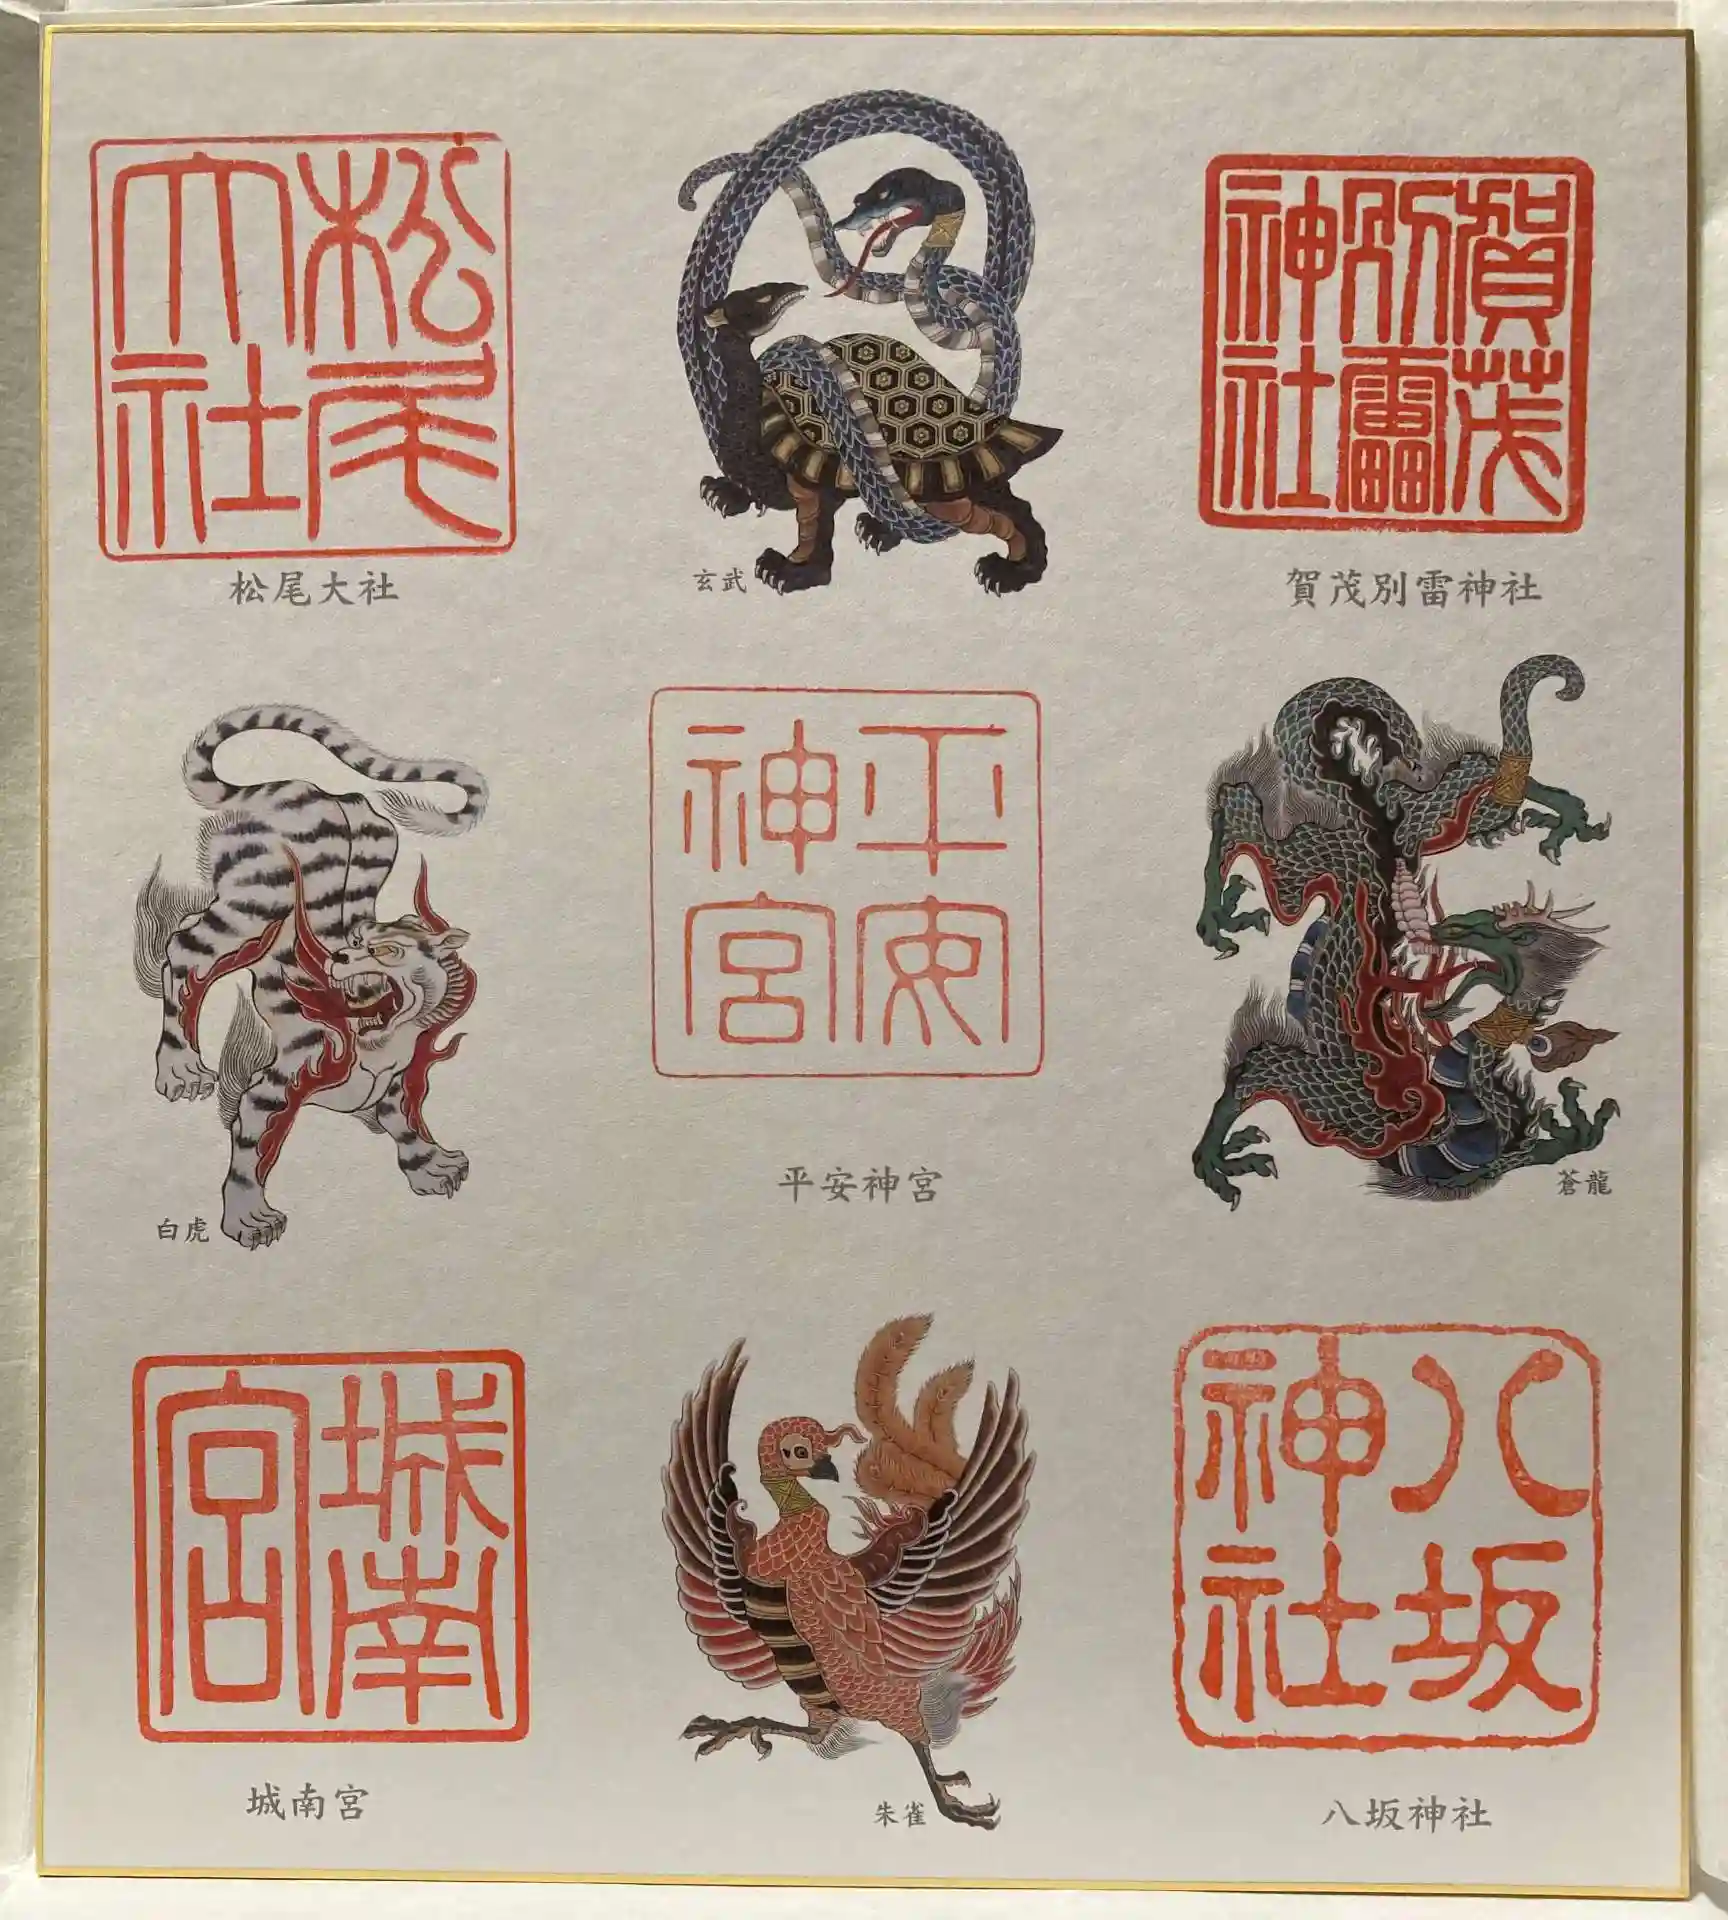 松尾大社
松尾大社
玄武
賀茂別雷神社
賀茂別雷神社
白虎
平安神宮
平安神宮
蒼龍
城南宮
城南宮
朱雀
八坂神社
八坂神社